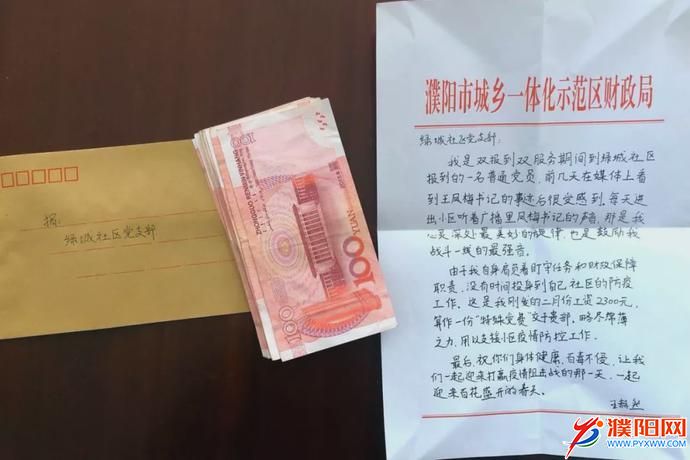 捐:
绿城社区党支部
100
YUAN
ZHONGGUO RENMIN YINHANG
100
100
濮阳市城乡一体化示范区财政局
绿城社区党支部:
我是双报到双服务期间到绿城社区
报到的一名普通党员,前几天在媒体上看
到王凤梅书记的事迹后很受感到,每天进
出小区听着广播里凤梅书记的声音,那是我
心灵深处最美妙的旋律,也是鼓励我
战斗一线的最强音。
由于我自身肩负着盯守任务和财政保障
职责,没有时间投身到自己社区的防疫
工作。这是我刚发的二月份工资2300元,
算作一份“特殊党费”交于贵部,略尽绵薄
之力,用以支援小区疫情防控工作。
最后,祝你们身体健康,百毒不侵,让我
们一起迎来打赢疫情阻击战的那一天,一起
迎来百花盛开的春天。
濮阳网
WWW.PYXWW.COM